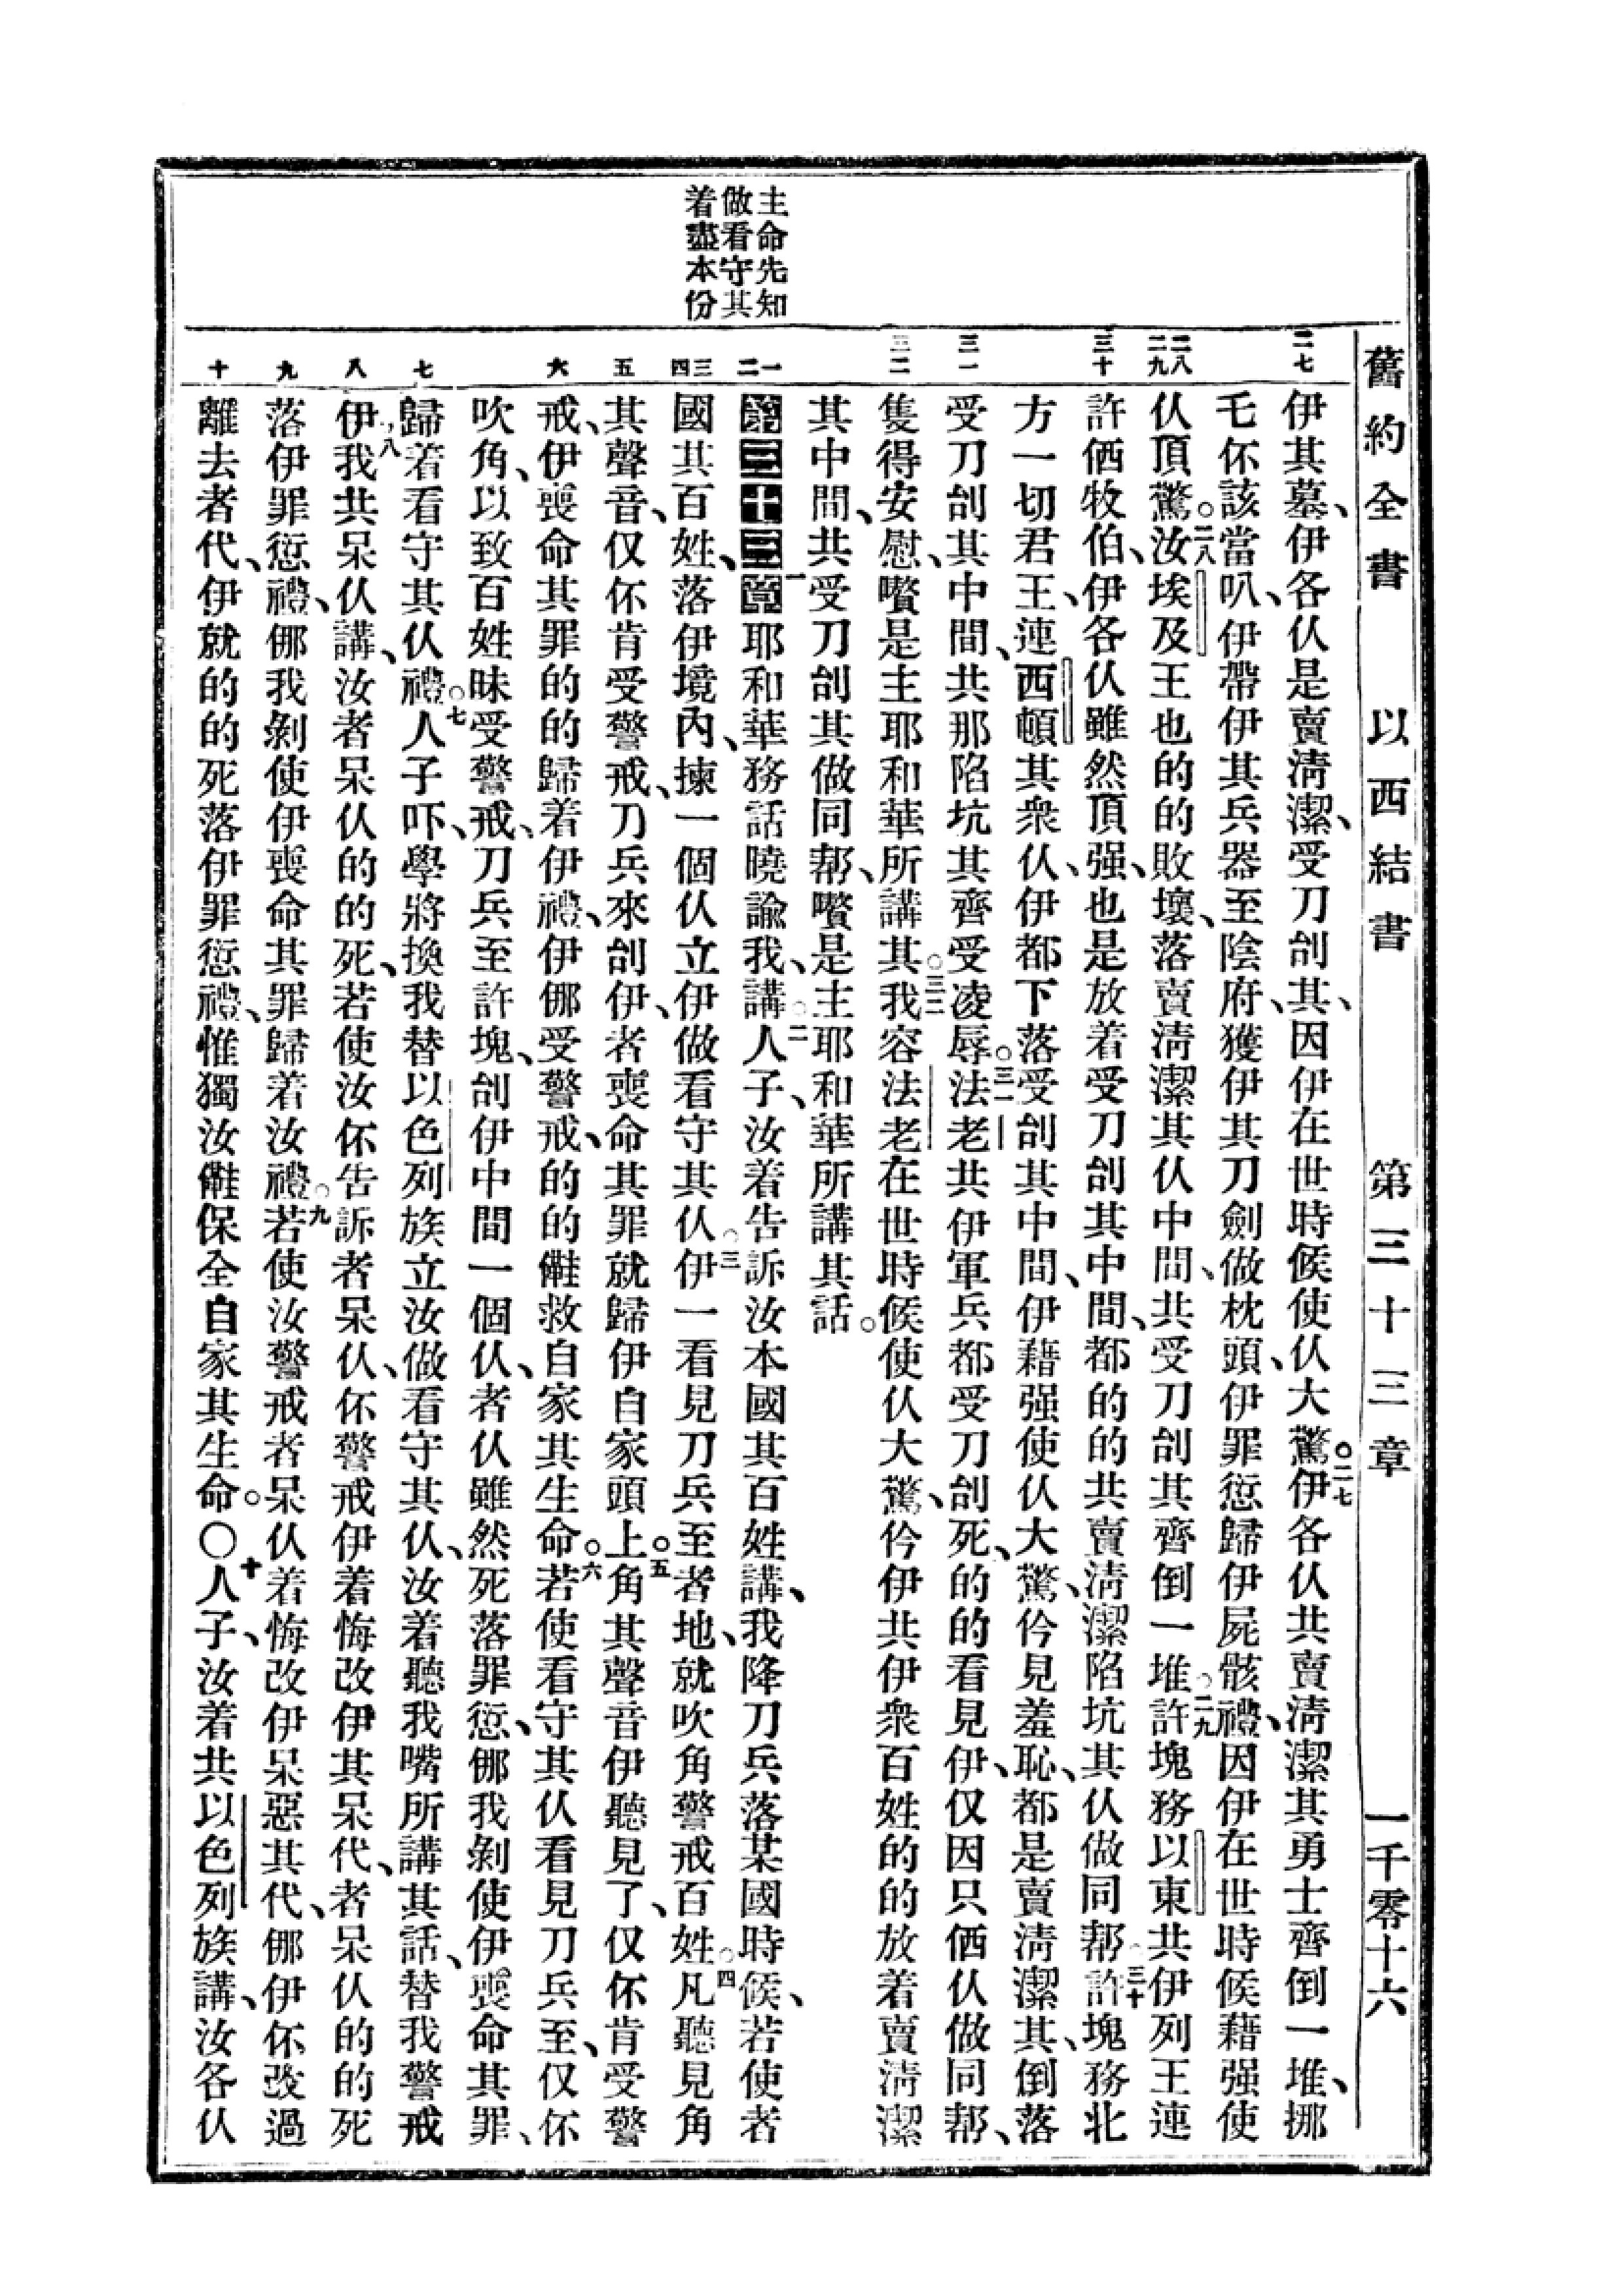 舊約全書 以西結書 第三十三章 一千零十六
主命先知
做看守其
着盡本份
二七
二八
二九
三十
三一
三二
一
二
三
四
五
六
七
八
九
十
伊其墓、伊各仈是賣淸潔、受刀刣其、因伊在世時候使仈大驚。二七伊各仈共賣淸潔其勇士齊倒一堆、挪
乇伓該當叭、伊帶伊其兵器至陰府、獲伊其刀劍做枕頭、伊罪愆歸伊屍骸禮、因伊在世時候藉强使
仈頂驚。二八汝埃及王也的的敗壞、落賣淸潔其仈中間、共受刀刣其齊倒一堆。二九許塊務以東共伊列王連
許伵牧伯、伊各仈雖然頂强、也是放着受刀刣其中間、都的的共賣淸潔陷坑其仈做同幇。三十許塊務北
方一切君王、連西頓其衆仈、伊都下落受刣其中間、伊藉强使仈大驚、仱見羞恥、都是賣淸潔其、倒落
受刀刣其中間、共那陷坑其齊受凌辱。三一法老共伊軍兵都受刀刣死、的的看見伊、仅因只伵仈做同幇、
隻得安慰、嚽是主耶和華所講其。三二我容法老在世時候使仈大驚、仱伊共伊衆百姓的的放着賣淸潔
其中間、共受刀刣其做同幇、嚽是主耶和華所講其話。
第三十三章一耶和華務話曉諭我、講。二人子、汝着告訴汝本國其百姓講、我降刀兵落某國時候、若使者
國其百姓、落伊境內、揀一個仈立伊做看守其仈。三伊一看見刀兵至者地、就吹角警戒百姓。四凡聽見角
其聲音、仅伓肯受警戒、刀兵來刣伊、者喪命其罪就歸伊自家頭上。五角其聲音伊聽見了、仅伓肯受警
戒、伊喪命其罪的的歸着伊禮、伊㑚受警戒、的的𠆧救自家其生命。六若使看守其仈看見刀兵至、仅伓
吹角、以致百姓昧受警戒、刀兵至許塊、刣伊中間一個仈、者仈雖然死落罪愆、㑚我剝使伊喪命其罪、
歸着看守其仈禮。七人子吓、學將換我替以色列族立汝做看守其仈、汝着聽我嘴所講其話、替我警戒
伊。八我共呆仈講、汝者呆仈的的死、若使汝伓告訴者呆仈、伓警戒伊着悔改伊其呆代、者呆仈的的死
落伊罪愆禮、㑚我剝使伊喪命其罪歸着汝禮。九若使汝警戒者呆仈着悔改伊呆惡其代、㑚伊伓改過
離去者代、伊就的的死落伊罪愆禮、惟獨汝𠆧保全自家其生命。〇十人子、汝着共以色列族講、汝各仈